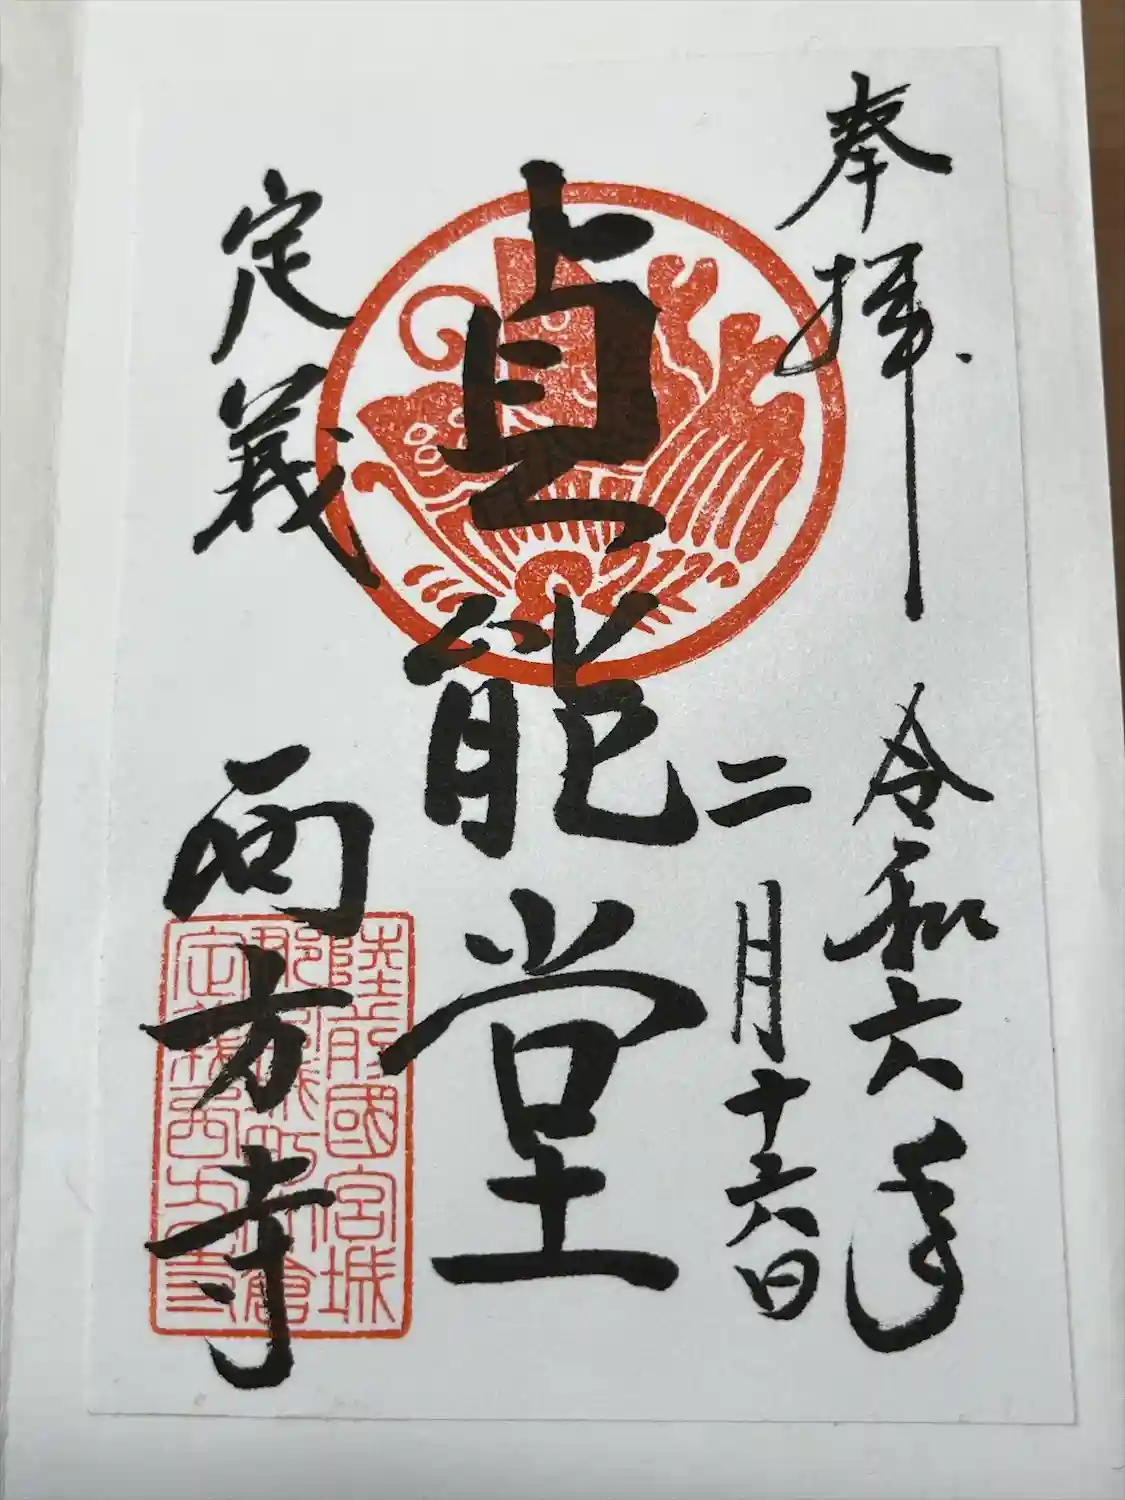 奉拝
令和六年
二月十六日
貞能堂
定義
西方寺
陸前國宮城
定義西方寺